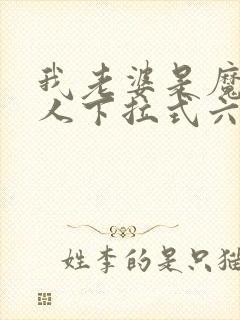 我老婆呆魔
人下拉式六
姓李的是只猫